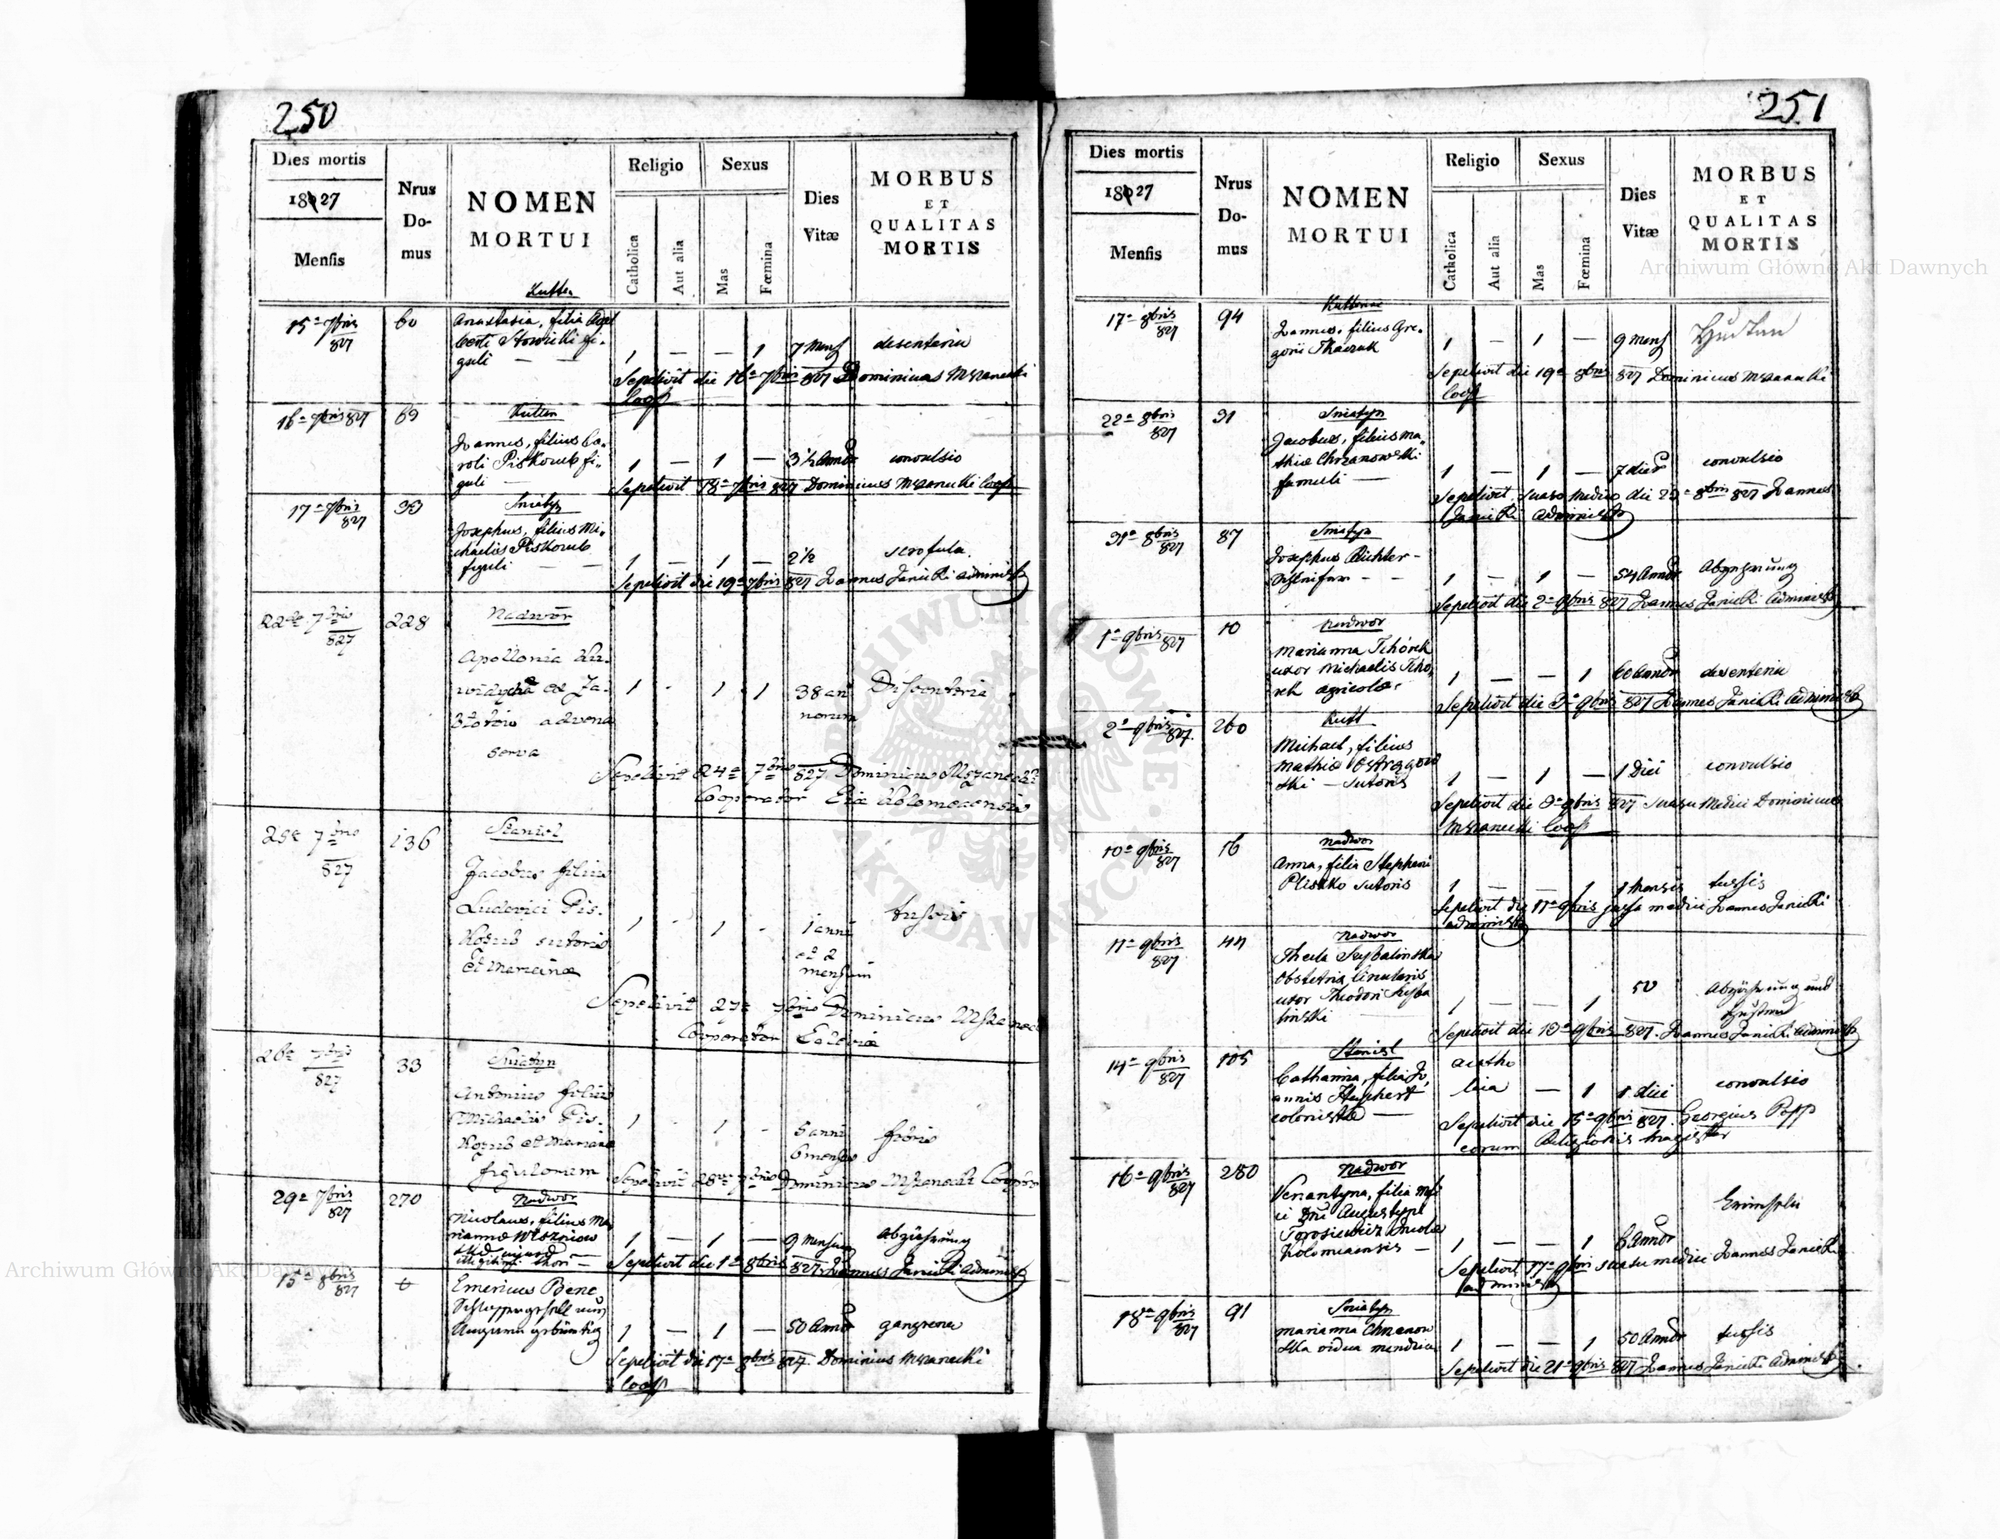 250
Dies mortis
1827
Mensis
Nrus
Do-
mus
NOMEN
MORTUI
Religio
Catholica
Aut alia
Sexus
Mas
Fœmina
Dies
Vitæ
MORBUS
ET
QUALITAS
MORTIS
Kutten
15a 7bris 827
60
Anastasia, filia
guli
1 — — 1
7 Mens
desenteria
Sepelivit die 16a 7bris 827 Dominicus Mszanecki
Coop
16a 7bris 827
69
Kutten
Joannes, filius Ca-
roli Piskozub fi-
guli
1 — 1 —
3½ Annor
convulsio
Sepelivit 18a 7bris 827 Dominicus Mszanecki Coop
17a 7bris 827
33
Sniatyn
Josephus, filius Mi-
chaelis Piskozub
figuli
1 — 1 —
2½
scrofula
Sepelivit die 19a 7bris 827 Joannes Janicki Administr
22a 7bris 827
228
Nadwor
Apollonia
advena
serva
1 - 1 1
38 an
norum
Disenteria
Sepelivit 24a 7bris 827 Dominicus Mszanecki
Cooperator Eccl Kolomeensis
25a 7bris 827
136
Stanisl
Jacobus filius
Ludovici Pis-
kozub sutoris
et Marianæ
1 - 1 -
1 anni
et 2
mensium
tussis
Sepelivit 27a 7bris Dominicus Mszanec
Cooperator
26a 7bris 827
33
Sniatyn
Antonius filius
Michaelis Pis-
kozub et Mariane
figulorum
1 - 1 -
5 anni
6 menses
Sepelivit 28a 7bris Dominicus Mszanecki Cooper
29a 7bris 827
270
Nadwor
Nicolaus, filius Ma-
riannæ
illegitimi thori
1 — 1 —
9 Mensium
Abzöhrung
Sepelivit die 1a 8bris 827 Joannes Janicki Administr
15a 8bris 827
Emericus Bene
1 — 1 —
50 Annor
gangrena
Sepelivit die 17a 8bris 827 Dominicus Mszanecki
Coop
251
Dies mortis
1827
Mensis
Nrus
Do-
mus
NOMEN
MORTUI
Religio
Catholica
Aut alia
Sexus
Mas
Fœmina
Dies
Vitæ
MORBUS
ET
QUALITAS
MORTIS
17a 8bris 827
94
Kuttense
Joannes, filius Gre-
gorii Tkaczuk
1 — 1 —
9 Mens
Husten
Sepelivit die 19a 8bris 827 Dominicus Mszanecki
Coop
22a 8bris 827
31
Sniatyn
Jacobus, filius Ma-
thiæ Chrzanowski
famuli
1 — 1 —
7 dier
convulsio
Sepelivit, suasu Medici die 8bris 827 Joannes
Janicki Administr
31a 8bris 827
87
Sniatyn
Josephus Richter
1 — 1 —
54 Annor
Abzehrung
Sepelivit die 2a 9bris 827 Joannes Janicki Administr
1a 9bris 827
10
Nadwor
Marianna Tchórek
uxor Michaelis Tcho-
rek agricolæ
1 — — 1
60 Annor
desenteria
Sepelivit die 3a 9bris 827 Joannes Janicki Administr
2a 9bris 827
260
Kutt
Michael, filius
Mathiæ
Sutoris
1 — 1 —
1 Diei
convulsio
Sepelivit die 3a 9bris 827 suasu Medici Dominicus
Mszanecki Coop
10a 9bris 827
16
Nadwor
Anna, filia Stephani
Pliszko Sutoris
1 — — 1
1 Mensis
tussis
Sepelivit die 11a 9bris jussu medici Joannes Janicki
Administr
11a 9bris 827
44
Nadwor
Thecla
Obstetrix
uxor Theodori
linski
1 — — 1
50
Abzöhrung und
Husten
Sepelivit die 13a 9bris 827. Joannes Janicki Administr
14a 9bris 827
105
Stanisl
Catharina, filia Jo-
annis
colonistæ
acatho
lica — 1
1 diei
convulsio
Sepelivit die 15a 9bris 827. Georgius Popp
eorum Religionis Magister
16a 9bris 827
280
Nadwor
Venantyna, filia
Augustyni
Torosiewicz
Kolomiaensis
1 — — 1
6 Annor
Sepelivit 17a 9bris suasu medici Joannes Janicki
Administr
18a 9bris 827
91
Sniatyn
Marianna Chrzanow
ska vidua mendica
1 — — 1
50 Annor
tussis
Sepelivit die 21a 9bris 827 Joannes Janicki Administr
ARCHIWUM GŁÓWNE AKT DAWNYCH
Archiwum Główne Akt Dawnych
Archiwum Główne Akt Dawnych